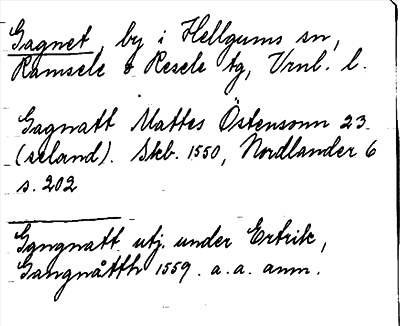 Gagnet, by i Hellgums sn,
Ramsele o Resele tg, Vrnl. l.
Gagnatt Mattes Östensonn 23
(seland). Skb. 1550, Nordlander 6
s. 202
Gangnatt utj. under Ertrik,
Gangnåtth 1559. a. a. anm.